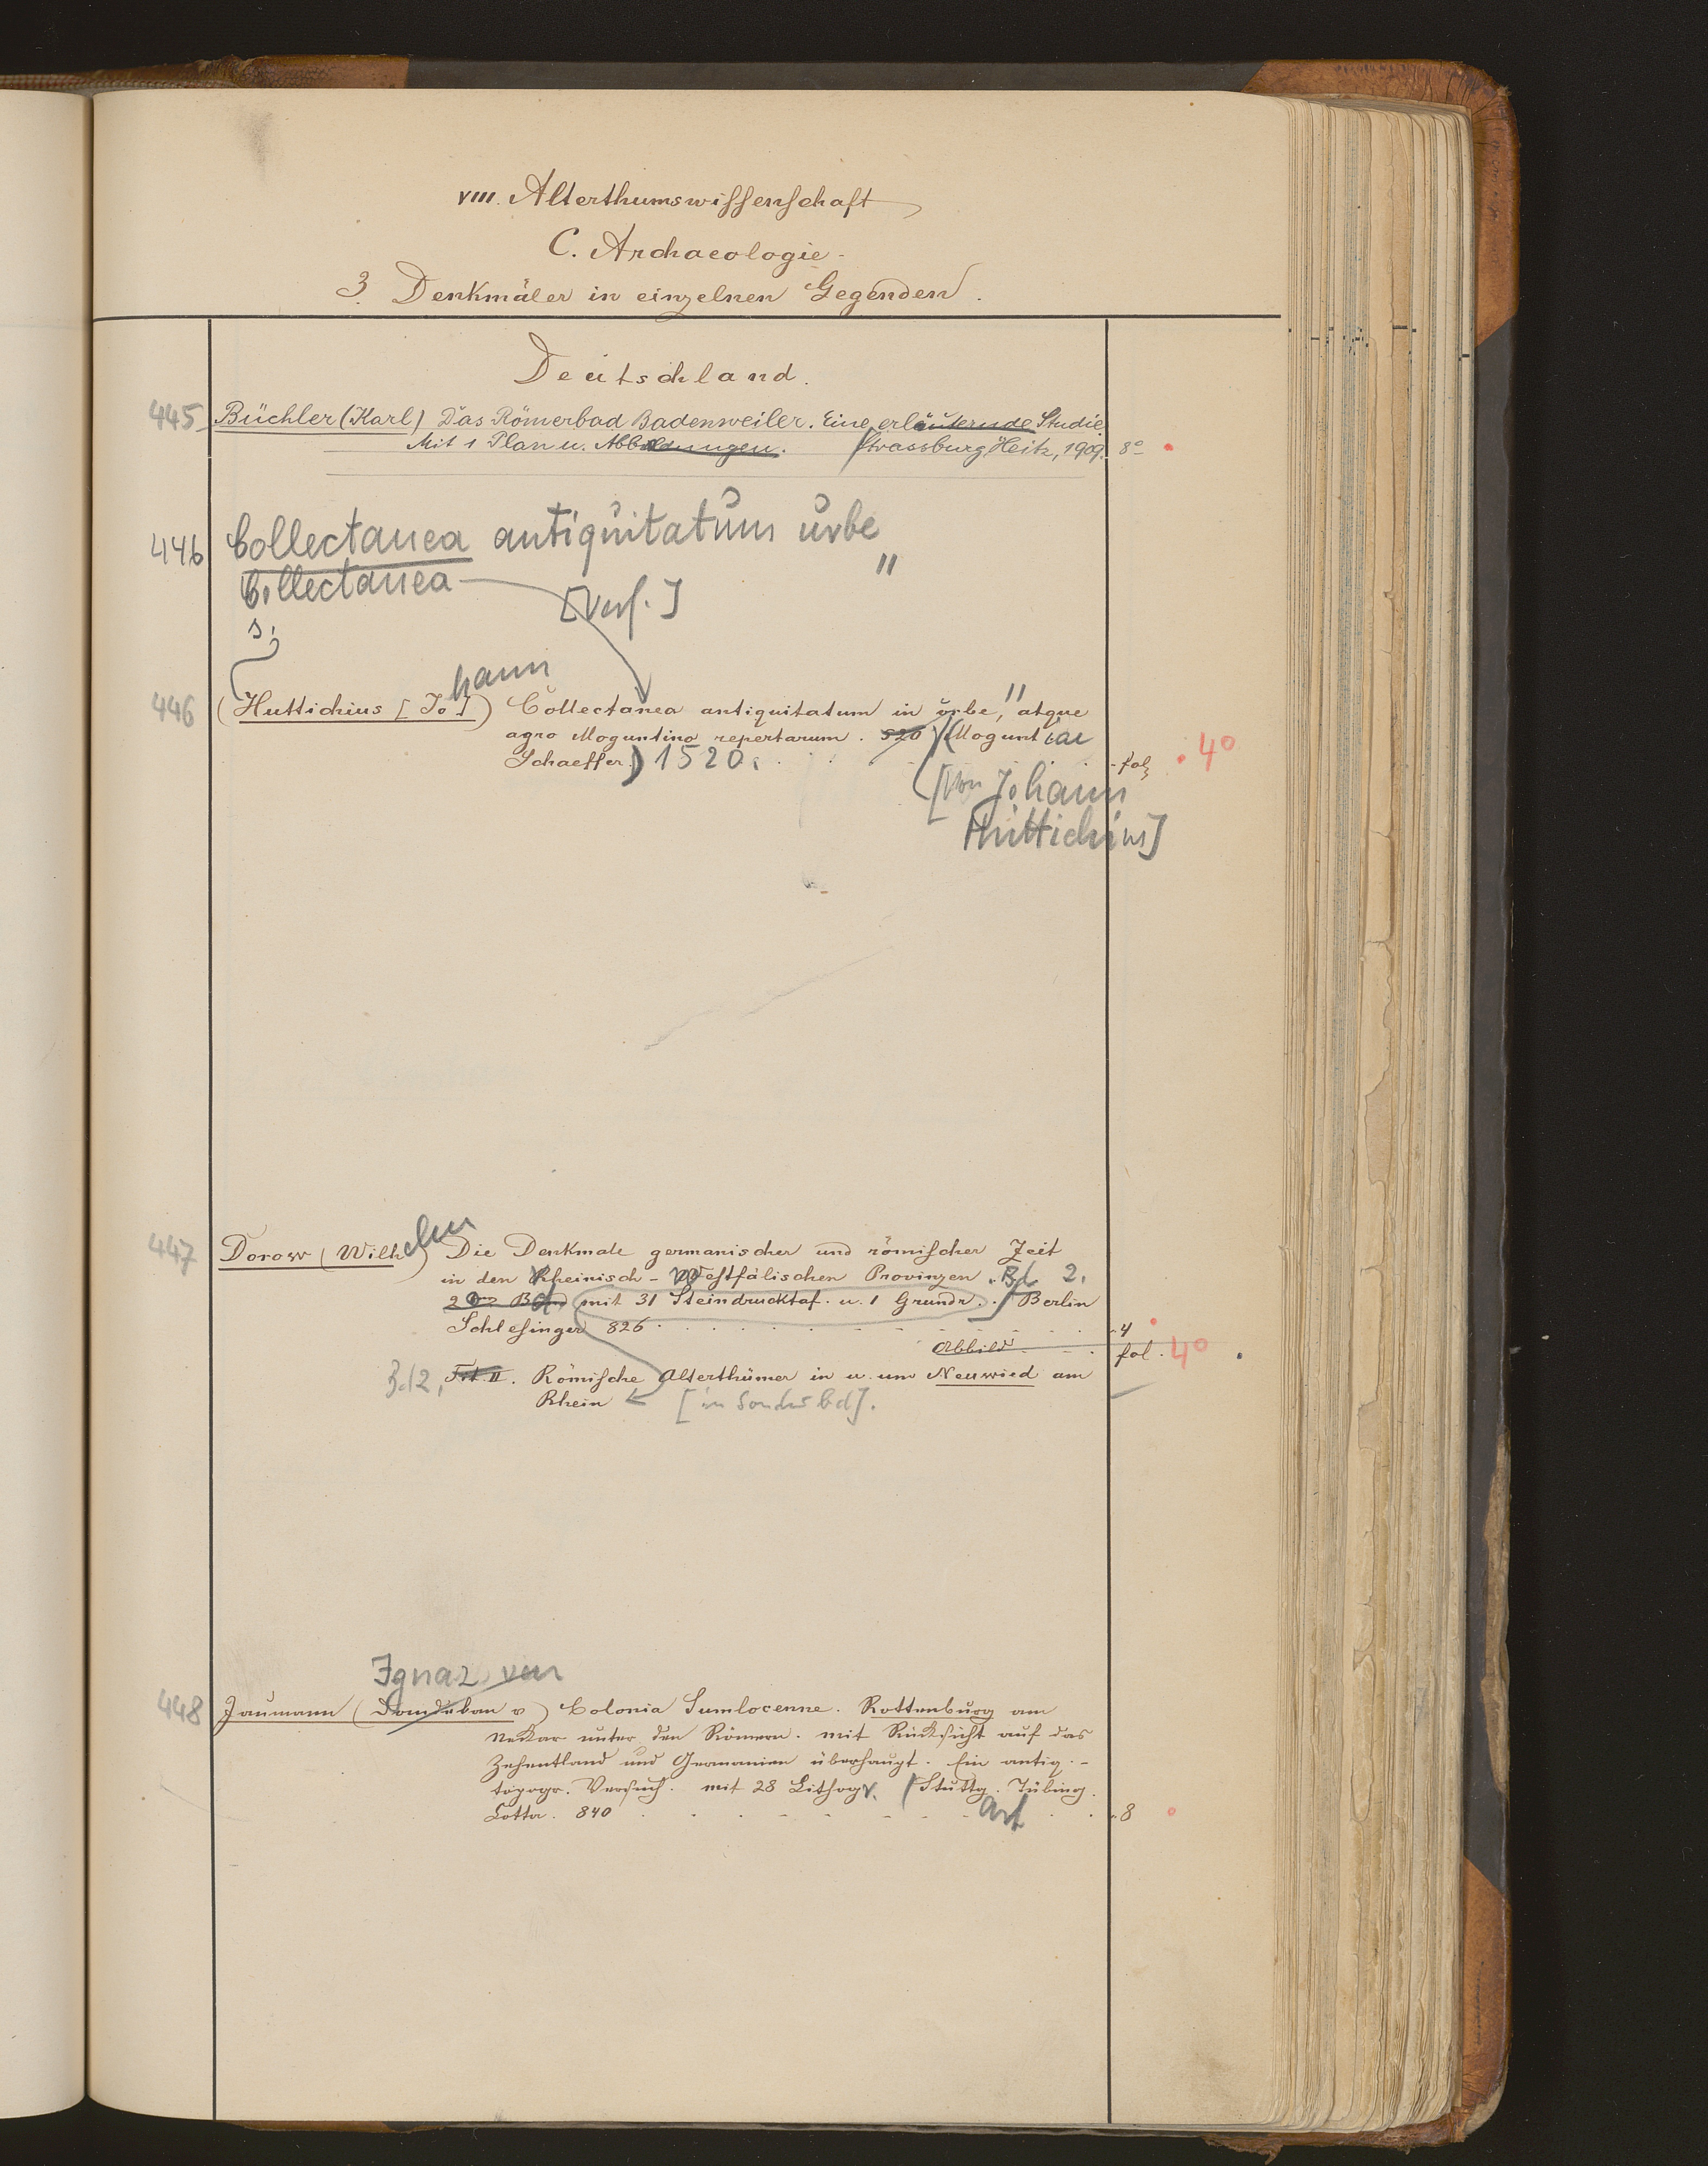 VIII. Alterthumswissenschaft
C. Archaeologie.
3. Denkmäler in einzelnen Gegenden.
Deutschland.
445 Büchler (Karl) Das Römerbad Badenweiler. Eine erläuternde Studie
Mit 1 Plan u. Abbildungen. Strassburg, Heitz, 1909. 8°
446 Collectanea antiquitatum urbe
Collectanea "
[Verf.]
s.
hann
446 (Huttichius [Jo]) Collectanea antiquitatum in urbe," atque
agro Moguntino repertarum. 520 (Moguntiae
Schaeffer) 1520. fol. 4°
[Von Johann
Huttichius]
447 Dorow (Wilhelm) Die Denkmale germanischer und römischer Zeit
in den Rheinisch-Westfälischen Provinzen. Bd. 2.
2 Band mit 31 Steindrucktaf. u. 1 Grundr. / Berlin
Schlesinger 826. 4
Abbild fol. 4°
Bd 2, II. Römische Alterthümer in u. um Neuwied am
Rhein [in Sonderbd].
Ignaz von
448 Jaumann (Domdekan v) Colonia Sumlocenne. Rottenburg am
Nekar unter den Römern. mit Rücksicht auf das
Zehentland und Germanien überhaupt. Ein antiq.-
topogr. Versuch. mit 28 Lithogr. / Stuttg. Tübing.
Cotta. 840 8